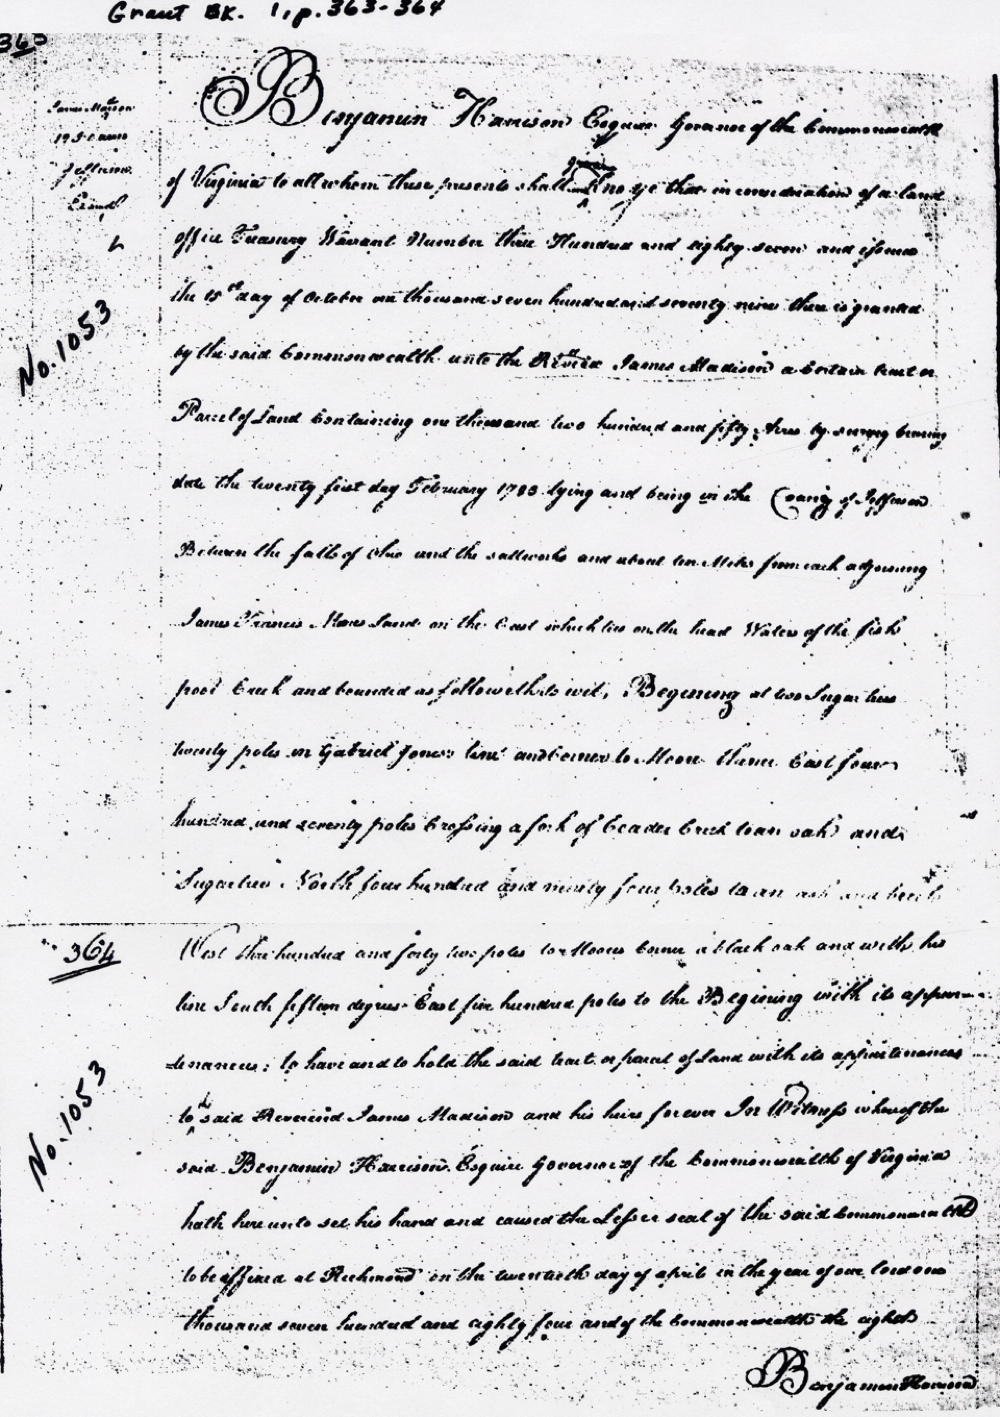 Grant BK. 1, p. 363-364
363
James Madison
1250 acres
Jefferson
No. 1053
Benjamin Harrison Esquire Governor of the Commonwealth
of Virginia to all whom these presents shall come greeting Kno ye that in consideration of a land
office Treasury Warrant Number three Hundred and eighty seven and issued
the 15th day of October one thousand seven hundred and seventy nine there is granted
by the said Commonwealth unto the Revd James Madison a certain tract or
Parcel of Land Containing one thousand two hundred and fifty Acres by survey bearing
date the twenty first day February 1783 lying and being in the County of Jefferson
Between the falls of Ohio and the saltworks and about ten Miles from each adjoining
James Francis Moores Land on the East which lies on the head Waters of the fish
pool Creek and bounded as followeth to wit, Begining at two Sugar trees
twenty poles in Gabriel Jones's line and corner to Moore thence East four
hundred and seventy poles Crossing a fork of Ceader Creek to an oak and
Sugartree North four hundred and ninety four poles to an ash and beech
364
West three hundred and forty two poles to Moores Corner a black oak and with his
line South fifteen degrees East five hundred poles to the Begining with its appur-
tenances; to have and to hold the said tract or parcel of Land with its appurtinances
to the said Reverend James Madison and his heirs forever In Witness whereof the
No. 1053
said Benjamin Harrison Esquire Governor of the Commonwealth of Virginia
hath here unto set his hand and caused the Lesser seal of the said Commonwealth
to be affixed at Richmond on the twentieth day of april in the year of our lord one
thousand seven hundred and eighty four and of the Commonwealth the eighth
Benjamin Harrison